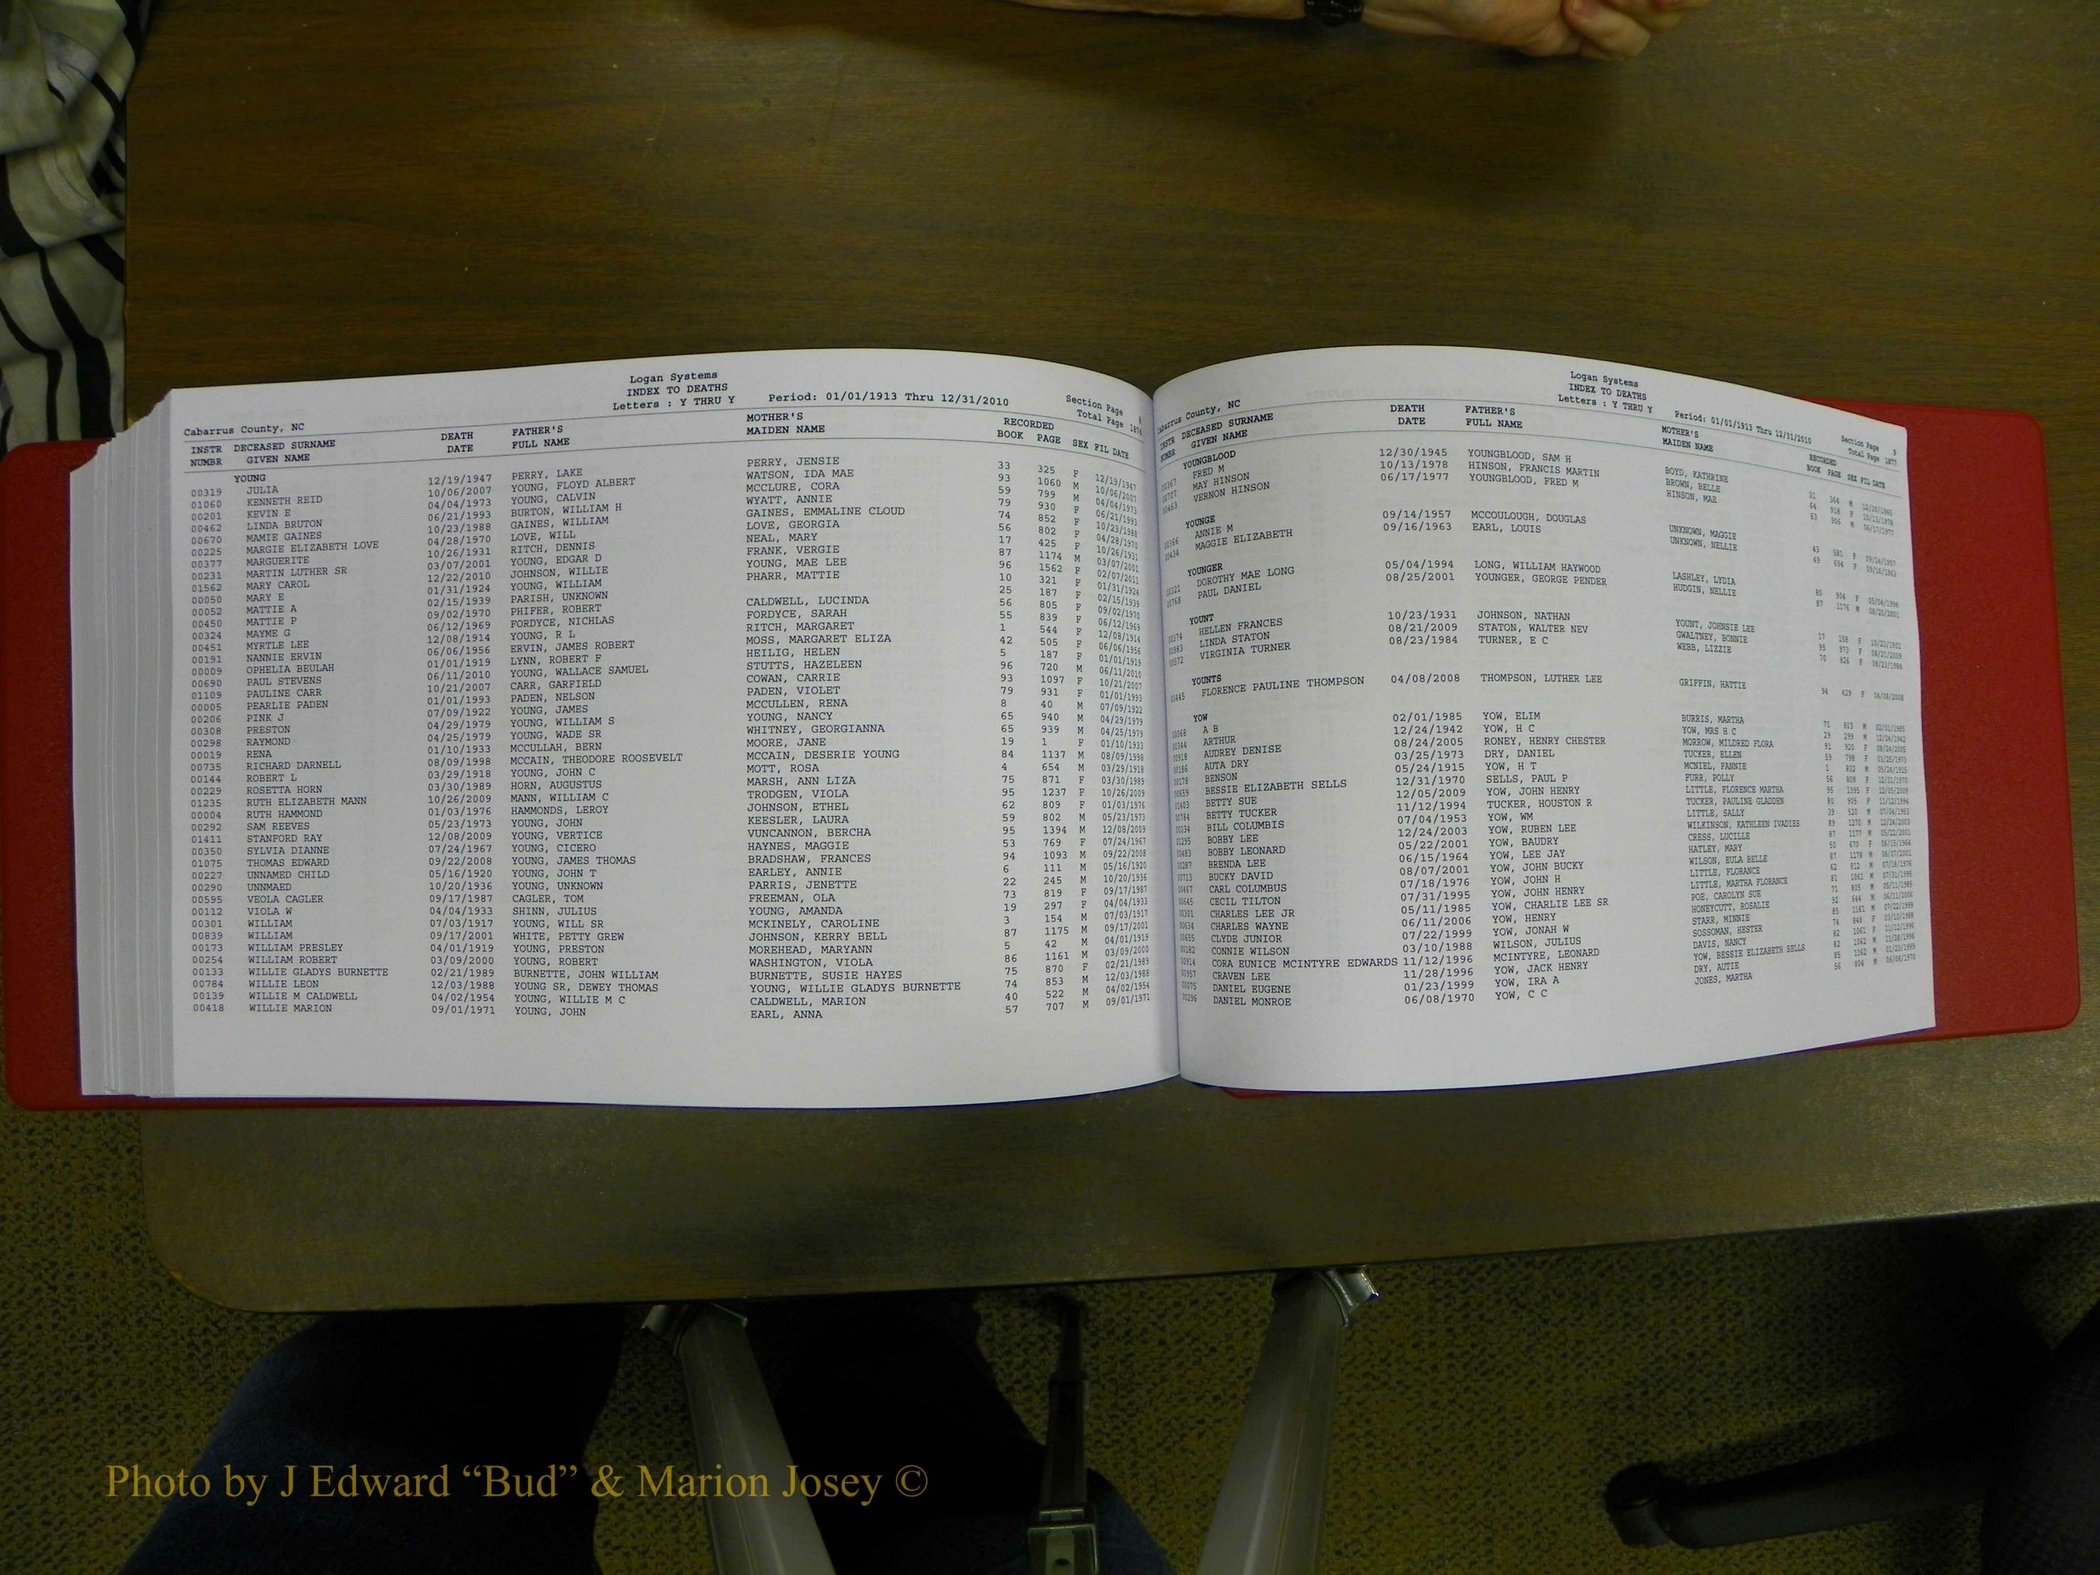 Logan Systems
INDEX TO DEATHS
Letters : Y THRU Y Period: 01/01/1913 Thru 12/31/2010
Section Page 8
Total Page 1876
Cabarrus County, NC
INSTR DECEASED SURNAME DEATH FATHER'S MOTHER'S RECORDED
NUMBR GIVEN NAME DATE FULL NAME MAIDEN NAME BOOK PAGE SEX FIL DATE
YOUNG
00319 JULIA 12/19/1947 PERRY, LAKE PERRY, JENSIE 33 325 F 12/19/1947
01060 KENNETH REID 10/06/2007 YOUNG, FLOYD ALBERT WATSON, IDA MAE 93 1060 M 10/06/2007
00201 KEVIN E 04/04/1973 YOUNG, CALVIN MCCLURE, CORA 59 799 M 04/04/1973
00462 LINDA BRUTON 06/21/1993 BURTON, WILLIAM H WYATT, ANNIE 79 930 F 06/21/1993
00670 MAMIE GAINES 10/23/1988 GAINES, WILLIAM GAINES, EMMALINE CLOUD 74 852 F 10/23/1988
00225 MARGIE ELIZABETH LOVE 04/28/1970 LOVE, WILL LOVE, GEORGIA 56 802 F 04/28/1970
00377 MARGUERITE 10/26/1931 RITCH, DENNIS NEAL, MARY 17 425 F 10/26/1931
00231 MARTIN LUTHER SR 03/07/2001 YOUNG, EDGAR D FRANK, VERGIE 87 1174 M 03/07/2001
01562 MARY CAROL 12/22/2010 JOHNSON, WILLIE YOUNG, MAE LEE 96 1562 F 02/07/2011
00050 MARY E 01/31/1924 YOUNG, WILLIAM PHARR, MATTIE 10 321 F 01/31/1924
00052 MATTIE A 02/15/1939 PARISH, UNKNOWN 25 187 F 02/15/1939
00450 MATTIE P 09/02/1970 PHIFER, ROBERT CALDWELL, LUCINDA 56 805 F 09/02/1970
00324 MAYME G 06/12/1969 FORDYCE, NICHLAS FORDYCE, SARAH 55 839 F 06/12/1969
00451 MYRTLE LEE 12/08/1914 YOUNG, R L RITCH, MARGARET 1 544 F 12/08/1914
00191 NANNIE ERVIN 06/06/1956 ERVIN, JAMES ROBERT MOSS, MARGARET ELIZA 42 505 F 06/06/1956
00009 OPHELIA BEULAH 01/01/1919 LYNN, ROBERT F HEILIG, HELEN 5 187 F 01/01/1919
00690 PAUL STEVENS 06/11/2010 YOUNG, WALLACE SAMUEL STUTTS, HAZELEEN 96 720 M 06/11/2010
01109 PAULINE CARR 10/21/2007 CARR, GARFIELD COWAN, CARRIE 93 1097 F 10/21/2007
00005 PEARLIE PADEN 01/01/1993 PADEN, NELSON PADEN, VIOLET 79 931 F 01/01/1993
00206 PINK J 07/09/1922 YOUNG, JAMES MCCULLEN, RENA 8 40 M 07/09/1922
00308 PRESTON 04/29/1979 YOUNG, WILLIAM S YOUNG, NANCY 65 940 M 04/29/1979
00298 RAYMOND 04/25/1979 YOUNG, WADE SR WHITNEY, GEORGIANNA 65 939 M 04/25/1979
00019 RENA 01/10/1933 MCCULLAH, BERN MOORE, JANE 19 1 F 01/10/1933
00735 RICHARD DARNELL 08/09/1998 MCCAIN, THEODORE ROOSEVELT MCCAIN, DESERIE YOUNG 84 1137 M 08/09/1998
00144 ROBERT L 03/29/1918 YOUNG, JOHN C MOTT, ROSA 4 654 M 03/29/1918
00229 ROSETTA HORN 03/30/1989 HORN, AUGUSTUS MARSH, ANN LIZA 75 871 F 03/30/1989
01235 RUTH ELIZABETH MANN 10/26/2009 MANN, WILLIAM C TRODGEN, VIOLA 95 1237 F 10/26/2009
00004 RUTH HAMMOND 01/03/1976 HAMMONDS, LEROY JOHNSON, ETHEL 62 809 F 01/03/1976
00292 SAM REEVES 05/23/1973 YOUNG, JOHN KEESLER, LAURA 59 802 M 05/23/1973
01411 STANFORD RAY 12/08/2009 YOUNG, VERTICE VUNCANNON, BERCHA 95 1394 M 12/08/2009
00350 SYLVIA DIANNE 07/24/1967 YOUNG, CICERO HAYNES, MAGGIE 53 769 F 07/24/1967
01075 THOMAS EDWARD 09/22/2008 YOUNG, JAMES THOMAS BRADSHAW, FRANCES 94 1093 M 09/22/2008
00227 UNNAMED CHILD 05/16/1920 YOUNG, JOHN T EARLEY, ANNIE 6 111 M 05/16/1920
00290 UNNMAED 10/20/1936 YOUNG, UNKNOWN PARRIS, JENETTE 22 245 M 10/20/1936
00595 VEOLA CAGLER 09/17/1987 CAGLER, TOM FREEMAN, OLA 73 819 F 09/17/1987
00112 VIOLA W 04/04/1933 SHINN, JULIUS YOUNG, AMANDA 19 297 F 04/04/1933
00301 WILLIAM 07/03/1917 YOUNG, WILL SR MCKINELY, CAROLINE 3 154 M 07/03/1917
00839 WILLIAM 09/17/2001 WHITE, PETTY GREW JOHNSON, KERRY BELL 87 1175 M 09/17/2001
00173 WILLIAM PRESLEY 04/01/1919 YOUNG, PRESTON MOREHEAD, MARYANN 5 42 M 04/01/1919
00254 WILLIAM ROBERT 03/09/2000 YOUNG, ROBERT WASHINGTON, VIOLA 86 1161 M 03/09/2000
00133 WILLIE GLADYS BURNETTE 02/21/1989 BURNETTE, JOHN WILLIAM BURNETTE, SUSIE HAYES 75 870 F 02/21/1989
00784 WILLIE LEON 12/03/1988 YOUNG SR, DEWEY THOMAS YOUNG, WILLIE GLADYS BURNETTE 74 853 M 12/03/1988
00139 WILLIE M CALDWELL 04/02/1954 YOUNG, WILLIE M C CALDWELL, MARION 40 522 M 04/02/1954
00418 WILLIE MARION 09/01/1971 YOUNG, JOHN EARL, ANNA 57 707 M 09/01/1971
Logan Systems
INDEX TO DEATHS
Letters : Y THRU Y Period: 01/01/1913 Thru 12/31/2010
Section Page 9
Total Page 1877
Cabarrus County, NC
INSTR DECEASED SURNAME DEATH FATHER'S MOTHER'S RECORDED
NUMBR GIVEN NAME DATE FULL NAME MAIDEN NAME BOOK PAGE SEX FIL DATE
YOUNGBLOOD
FRED M 12/30/1945 YOUNGBLOOD, SAM H BOYD, KATHRINE 31 366 M 12/30/1945
MAY HINSON 10/13/1978 HINSON, FRANCIS MARTIN BROWN, BELLE 64 918 F 10/13/1978
00463 VERNON HINSON 06/17/1977 YOUNGBLOOD, FRED M HINSON, MAE 63 906 M 06/17/1977
YOUNGE
00366 ANNIE M 09/14/1957 MCCOULOUGH, DOUGLAS UNKNOWN, MAGGIE 43 581 F 09/14/1957
00434 MAGGIE ELIZABETH 09/16/1963 EARL, LOUIS UNKNOWN, NELLIE 49 694 F 09/16/1963
YOUNGER
00321 DOROTHY MAE LONG 05/04/1994 LONG, WILLIAM HAYWOOD LASHLEY, LYDIA 80 904 F 05/04/1994
00768 PAUL DANIEL 08/25/2001 YOUNGER, GEORGE PENDER HUDGIN, NELLIE 87 1176 M 08/25/2001
YOUNT
00374 HELLEN FRANCES 10/23/1931 JOHNSON, NATHAN YOUNT, JOHNSIE LEE 17 158 F 10/23/1931
00983 LINDA STATON 08/21/2009 STATON, WALTER NEV GWALTNEY, BONNIE 95 973 F 08/21/2009
00572 VIRGINIA TURNER 08/23/1984 TURNER, E C WEBB, LIZZIE 70 826 F 08/23/1984
YOUNTS
00445 FLORENCE PAULINE THOMPSON 04/08/2008 THOMPSON, LUTHER LEE GRIFFIN, HATTIE 94 429 F 04/08/2008
YOW
00068 A B 02/01/1985 YOW, ELIM BURRIS, MARTHA 71 803 M 02/01/1985
00344 ARTHUR 12/24/1942 YOW, H C YOW, MRS H C 29 299 M 12/24/1942
00918 AUDREY DENISE 08/24/2005 RONEY, HENRY CHESTER MORROW, MILDRED FLORA 91 920 F 08/24/2005
00186 AUTA DRY 03/25/1973 DRY, DANIEL TUCKER, ELLEN 59 798 F 03/25/1973
00178 BENSON 05/24/1915 YOW, H T MCNIEL, FANNIE 1 832 M 05/24/1915
00659 BESSIE ELIZABETH SELLS 12/31/1970 SELLS, PAUL P FURR, POLLY 56 808 F 12/31/1970
01403 BETTY SUE 12/05/2009 YOW, JOHN HENRY LITTLE, FLORENCE MARTHA 95 1395 F 12/05/2009
00784 BETTY TUCKER 11/12/1994 TUCKER, HOUSTON R TUCKER, PAULINE GLADDEN 80 905 F 11/12/1994
00234 BILL COLUMBIS 07/04/1953 YOW, WM LITTLE, SALLY 39 520 M 07/04/1953
01295 BOBBY LEE 12/24/2003 YOW, RUBEN LEE WILKINSON, KATHLEEN IVADIES 89 1270 M 12/24/2003
00483 BOBBY LEONARD 05/22/2001 YOW, BAUDRY CRESS, LUCILLE 87 1177 M 05/22/2001
00287 BRENDA LEE 06/15/1964 YOW, LEE JAY HATLEY, MARY 50 670 F 06/15/1964
00713 BUCKY DAVID 08/07/2001 YOW, JOHN BUCKY WILSON, EULA BELLE 87 1178 M 08/07/2001
00467 CARL COLUMBUS 07/18/1976 YOW, JOHN H LITTLE, FLORANCE 62 812 M 07/18/1976
00645 CECIL TILTON 07/31/1995 YOW, JOHN HENRY LITTLE, MARTHA FLORANCE 81 1061 M 07/31/1995
00301 CHARLES LEE JR 05/11/1985 YOW, CHARLIE LEE SR POE, CAROLYN SUE 71 805 M 05/11/1985
00634 CHARLES WAYNE 06/11/2006 YOW, HENRY HONEYCUTT, ROSALIE 92 644 M 06/11/2006
00655 CLYDE JUNIOR 07/22/1999 YOW, JONAH W STARR, MINNIE 85 1161 M 07/22/1999
00182 CONNIE WILSON 03/10/1988 WILSON, JULIUS SOSSOMAN, HESTER 74 848 F 03/10/1988
00914 CORA EUNICE MCINTYRE EDWARDS 11/12/1996 MCINTYRE, LEONARD DAVIS, NANCY 82 1061 F 11/12/1996
00957 CRAVEN LEE 11/28/1996 YOW, JACK HENRY YOW, BESSIE ELIZABETH SELLS 82 1062 M 11/28/1996
00075 DANIEL EUGENE 01/23/1999 YOW, IRA A DRY, AUTIE 85 1162 M 01/23/1999
00296 DANIEL MONROE 06/08/1970 YOW, C C JONES, MARTHA 56 804 M 06/08/1970
Photo by J Edward “Bud” & Marion Josey ©